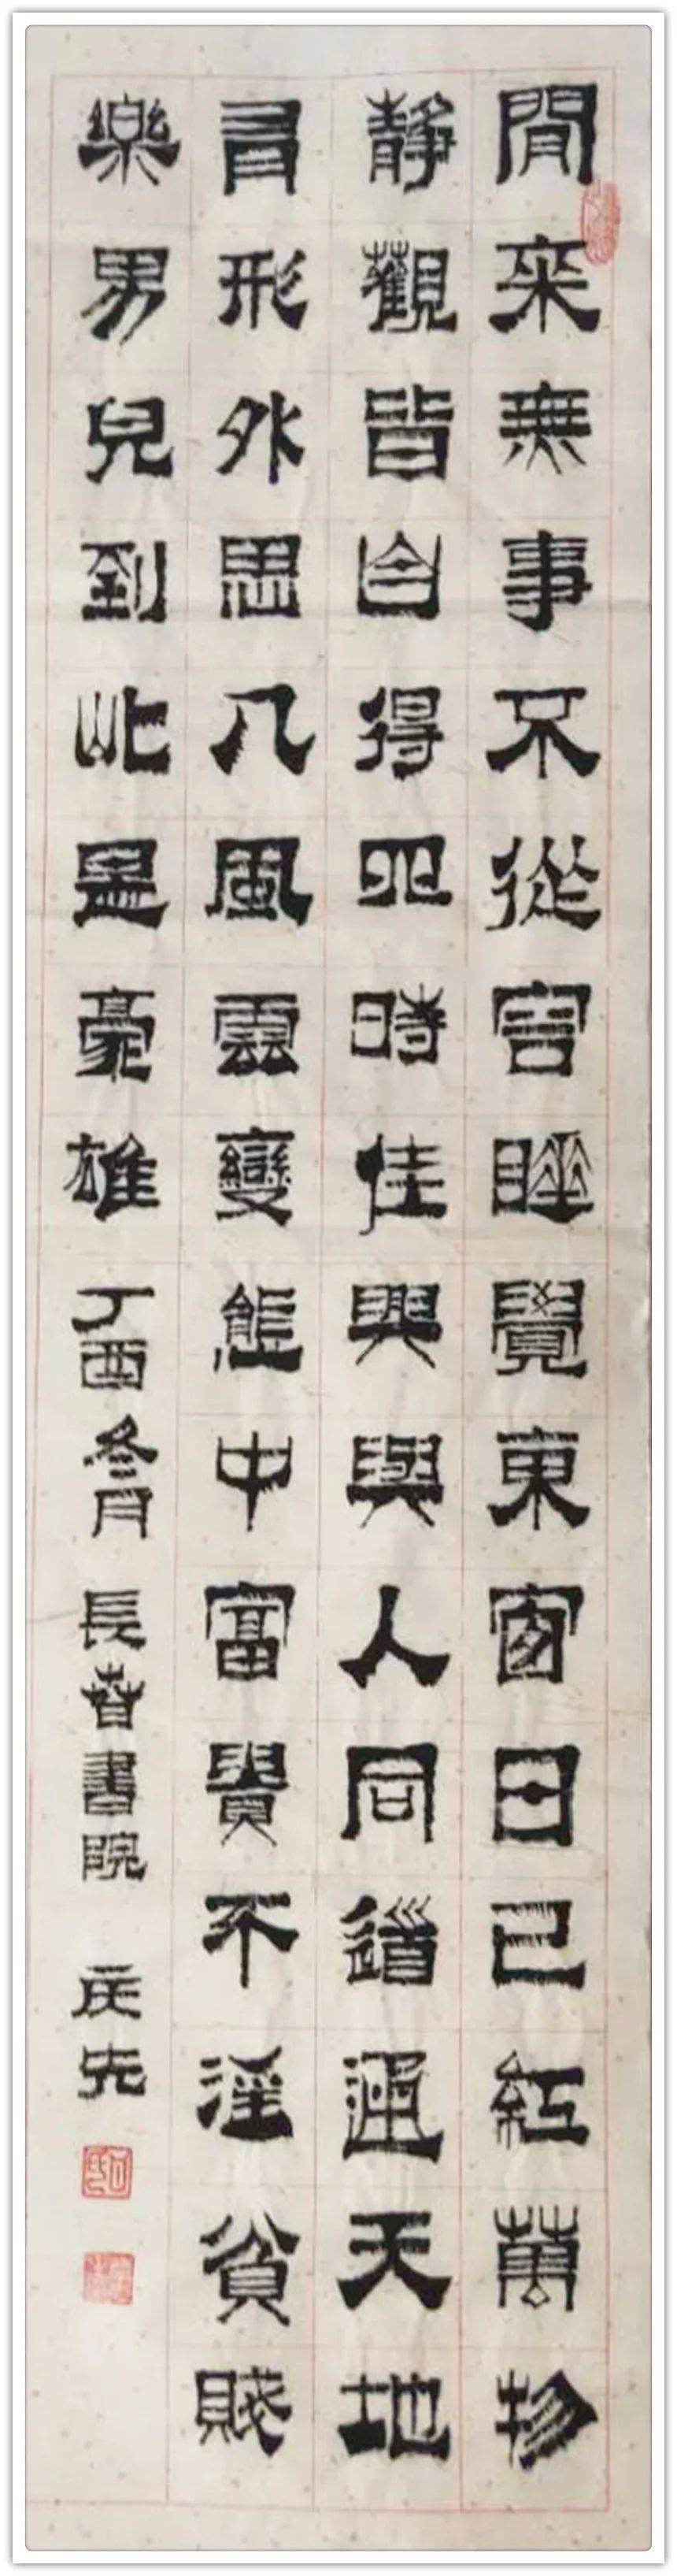 閒来無事不從容睡覺東窗日已紅萬物
靜觀皆自得四時佳興與人同道通天地
有形外思入風雲變態中富貴不淫貧賤
樂男兒到此是豪雄 丁酉冬月 長春書院 庆先